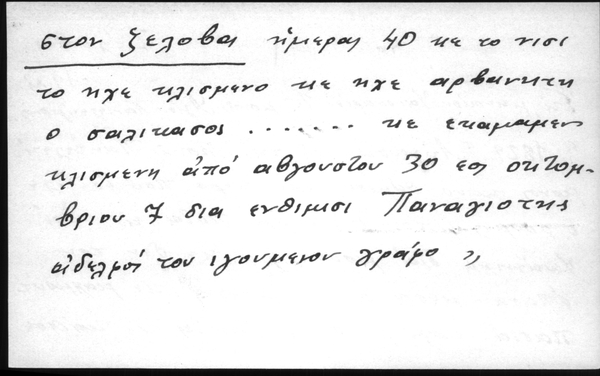 στον ξελοβας ήμερας 40 κε το νισι
το ηχε κλισμενο κε ηχε αρβανητη
ο σαλικασος ....... κε εκαμαμεν
κλισμενη ἀπό αβγουστου 30 εος οκτομ-
βριου 7 δια ενθιμισι Παναγιοτης
ἀδελφός του ιγουμενου γράφο „